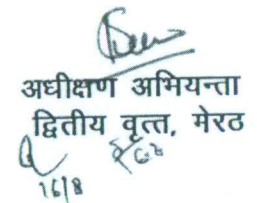 अधीक्षण अभियन्ता
द्वितीय वृत्त, मेरठ
16|8